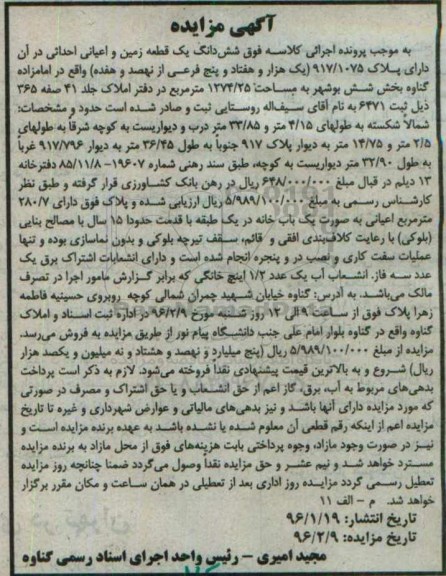 آگهی مزایده
به موجب پرونده اجرائی کلاسه فوق شش‌دانگ یک قطعه زمین و اعیانی احداثی در آن
دارای پلاک ۹۱۷/۱۰۷۵ (یک هزار و هفتاد و پنج فرعی از نهصد و هفده) واقع در امامزاده
گناوه بخش شش بوشهر به مساحت ۱۲۷۴/۲۵ مترمربع در دفتر املاک جلد ۴۱ صفه ۳۶۵
ذیل ثبت ۶۴۷۱ به نام آقای سیف‌اله روستایی ثبت و صادر شده است حدود و مشخصات:
شمالا شکسته به طولهای ۴/۱۵ متر و ۳۳/۸۵ متر درب و دیواریست به کوچه شرقا به طولهای
۲/۵ متر و ۱۴/۷۵ متر به دیوار پلاک ۹۱۷ جنوباً به طول ۳۶/۴۵ متر به دیوار ۹۱۷/۷۹۶ غربا
به طول ۳۲/۹۰ متر دیواریست به کوچه، طبق سند رهنی شماره ۱۹۶۰۷-۸۵/۱۱/۸ دفترخانه
۱۳ دیلم در قبال مبلغ ۶۴۸/۰۰۰/۰۰۰ ریال در رهن بانک کشاورزی قرار گرفته و طبق نظر
کارشناس رسمی به مبلغ ۵/۹۸۹/۱۰۰/۰۰۰ ریال ارزیابی شده و پلاک فوق دارای ۲۸۰/۷
مترمربع اعیانی به صورت یک باب خانه در یک طبقه با قدمت حدودا ۱۵ سال با مصالح بنایی
(بلوکی) با رعایت کلاف‌بندی افقی و قائم، سقف تیرچه بلوکی و بدون نماسازی بوده و تنها
عملیات سفت کاری و نصب در و پنجره انجام شده است و دارای انشعابات اشتراک برق یک
عدد سه فاز، انشعاب آب یک عدد ۱/۲ اینچ خانگی که برابر گزارش مامور اجرا در تصرف
مالک می‌باشد. به آدرس: گناوه خیابان شهید چمران شمالی کوچه روبروی حسینیه فاطمه
زهرا پلاک فوق از ساعت ۹ الی ۱۲ روز شنبه مورخ ۹۶/۲/۹ در اداره ثبت اسناد و املاک
گناوه واقع در گناوه بلوار امام علی جنب دانشگاه پیام نور از طریق مزایده به فروش می‌رسد.
مزایده از مبلغ ۵/۹۸۹/۱۰۰/۰۰۰ ریال (پنج میلیارد و نهصد و هشتاد و نه میلیون و یکصد هزار
ریال) شروع و به بالاترین قیمت پیشنهادی نقداً فروخته می‌شود. لازم به ذکر است پرداخت
بدهی‌های مربوط به آب، برق، گاز اعم از حق انشعاب و یا حق اشتراک و مصرف در صورتی
که مورد مزایده دارای آنها باشد و نیز بدهی‌های مالیاتی و عوارض شهرداری و غیره تا تاریخ
مزایده اعم از اینکه رقم قطعی آن معلوم شده یا نشده باشد به عهده برنده مزایده است و
نیز در صورت وجود مازاد، وجوه پرداختی بابت هزینه‌های فوق از محل مازاد به برنده مزایده
مسترد خواهد شد و نیم عشر و حق مزایده نقداً وصول می‌گردد ضمنا چنانچه روز مزایده
تعطیل رسمی گردد مزایده روز اداری بعد از تعطیلی در همان ساعت و مکان مقرر برگزار
خواهد شد. م - الف ۱۱
تاریخ انتشار: ۹۶/۱/۱۹
تاریخ مزایده: ۹۶/۲/۹
مجید امیری - رئیس واحد اجرای اسناد رسمی گناوه